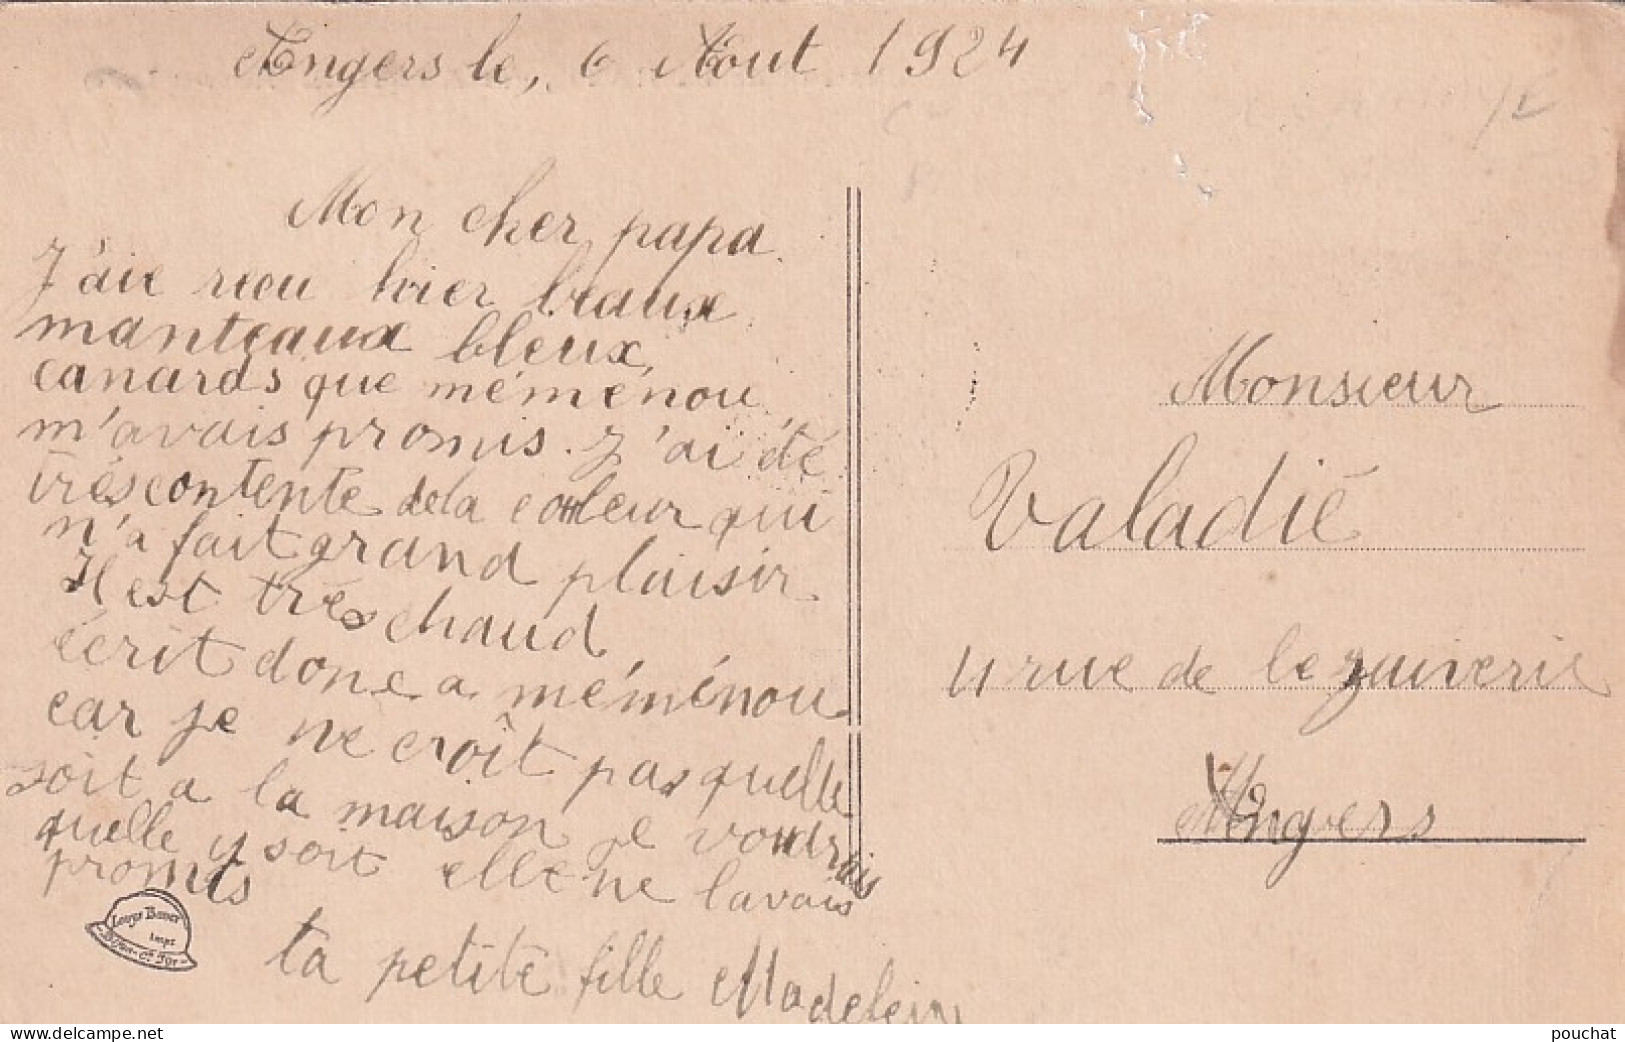 Angers le, 6 Aout 1924
Mon cher papa
J'aie reçu hier beaux
manteaux bleux,
canards que méménou
m'avais promis. J'ai été
trés contente dela couleur qui
n'a fait grand plaisir
Il est trés chaud
écrit donc a méménou
car je ne croît pas quelle
soit a la maison je voudrais
quelle y soit elle ne lavais
promis
ta petite fille Madelein
Louys Bauer
Impr
Dijon
Monsieur
Valadié
4 rue de le
Angers
www.delcampe.net
pouchat